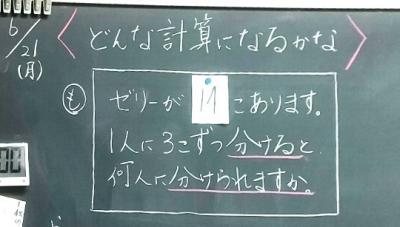 6/21
(月)
〈どんな計算になるかな〉
も
ゼリーが14こあります。
1人に3こずつ分けると
何人に分けられますか。